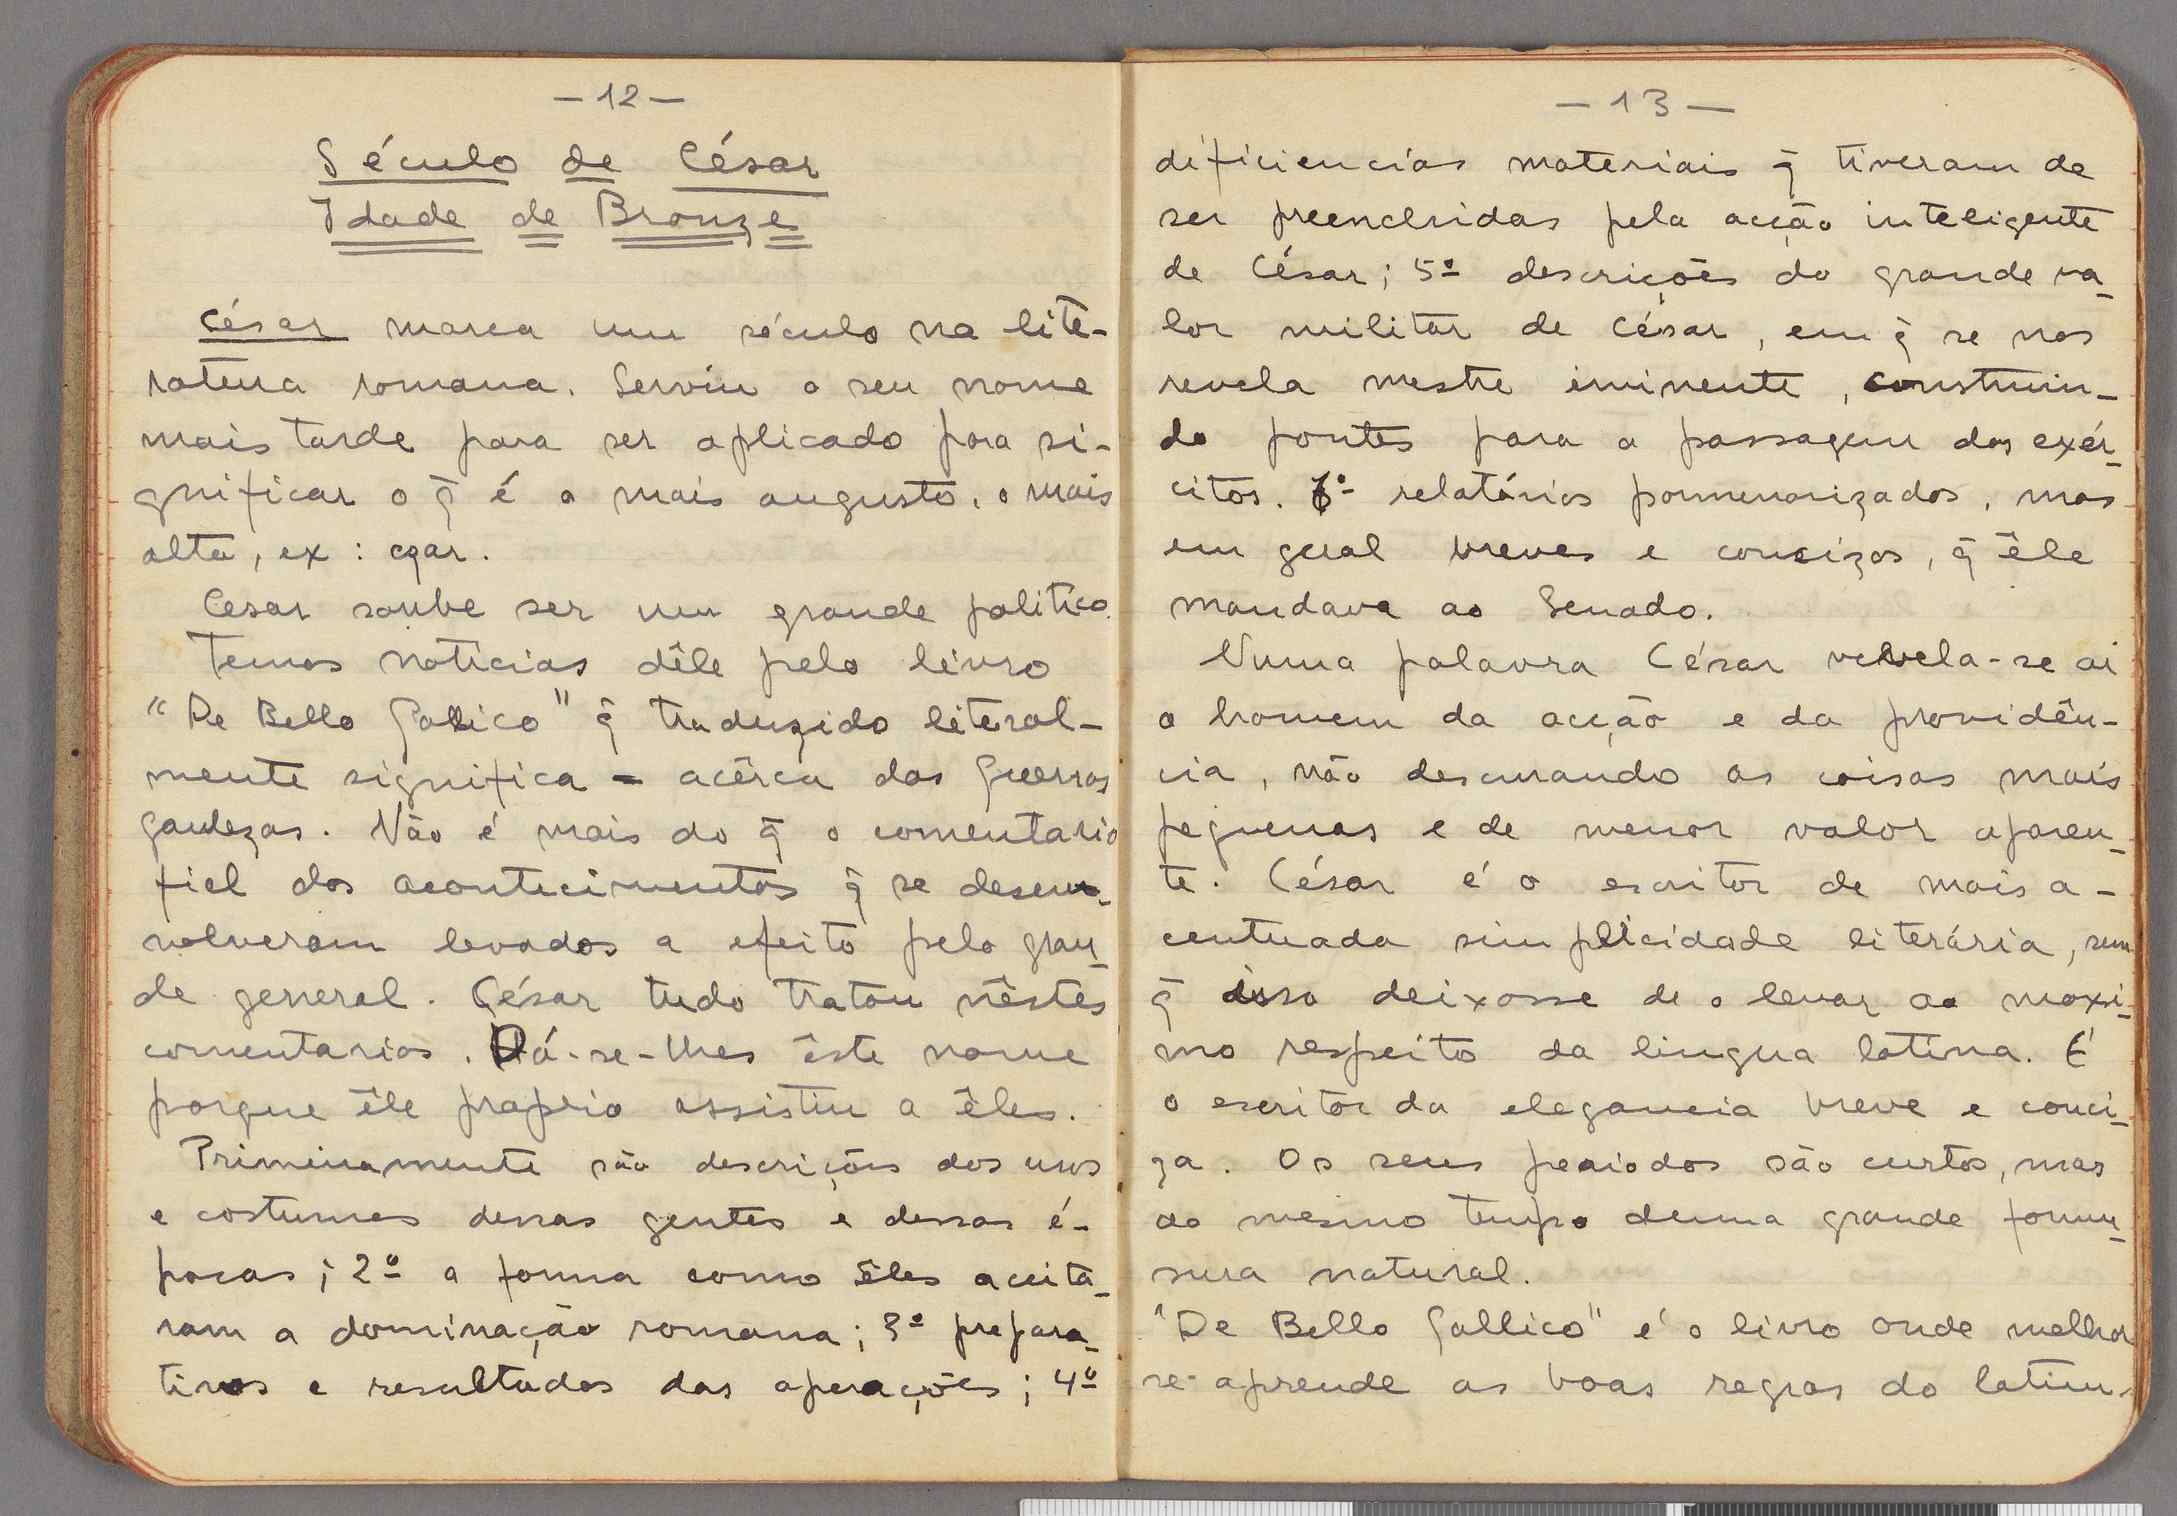 - 12 -
Século de César
Idade de Bronze
César marca um século na lite-
ratura romana. Serviu o seu nome
mais tarde para ser aplicado para si-
gnificar o q̄ é o mais augusto, o mais
alto, ex : czar.
Cesar soube ser um grande politico.
Temos noticias dêle pelo livro
"De Bello Gallico" q̄ traduzido literal-
mente significa - acêrca das Guerras
gaulezas. Não é mais do q̄ o comentario
fiel dos acontecimentos q̄ se desen-
volveram levados a efeito pelo gran-
de general. César tudo tratou nêstes
comentarios. Dá-se-lhes êste nome
porque êle proprio assistiu a êles.
Primeiramente são descrições dos usos
e costumes dessas gentes e dessas é-
pocas; 2º a forma como êles aceita-
ram a dominação romana; 3º prepara-
tivos e resultados das operações; 4º
- 13 -
dificiencias materiais q̄ tiveram de
ser preenchidas pela acção inteligente
de César; 5º descrições do grande va-
lor militar de César, em q̄ se nos
revela mestre iminente, construin-
do pontes para a passagem dos exér-
citos. 6º relatórios pormenorizados, mas
em geral breves e concizos, q̄ êle
mandava ao Senado.
Numa palavra César revela-se ai
o homem da acção e da providên-
cia, não descurando as coisas mais
pequenas e de menor valor aparen-
te. César é o escritor de mais a-
centuada simplicidade literária, sem
q̄ isso deixasse de o levar ao maxi-
mo respeito da lingua latina. É
o escritor da elegancia breve e conci-
za. Os seus periodos são curtos, mas
ao mesmo tempo duma grande formu-
sura natural.
"De Bello Gallico" é o livro onde melhor
se aprende as boas regras do latim.